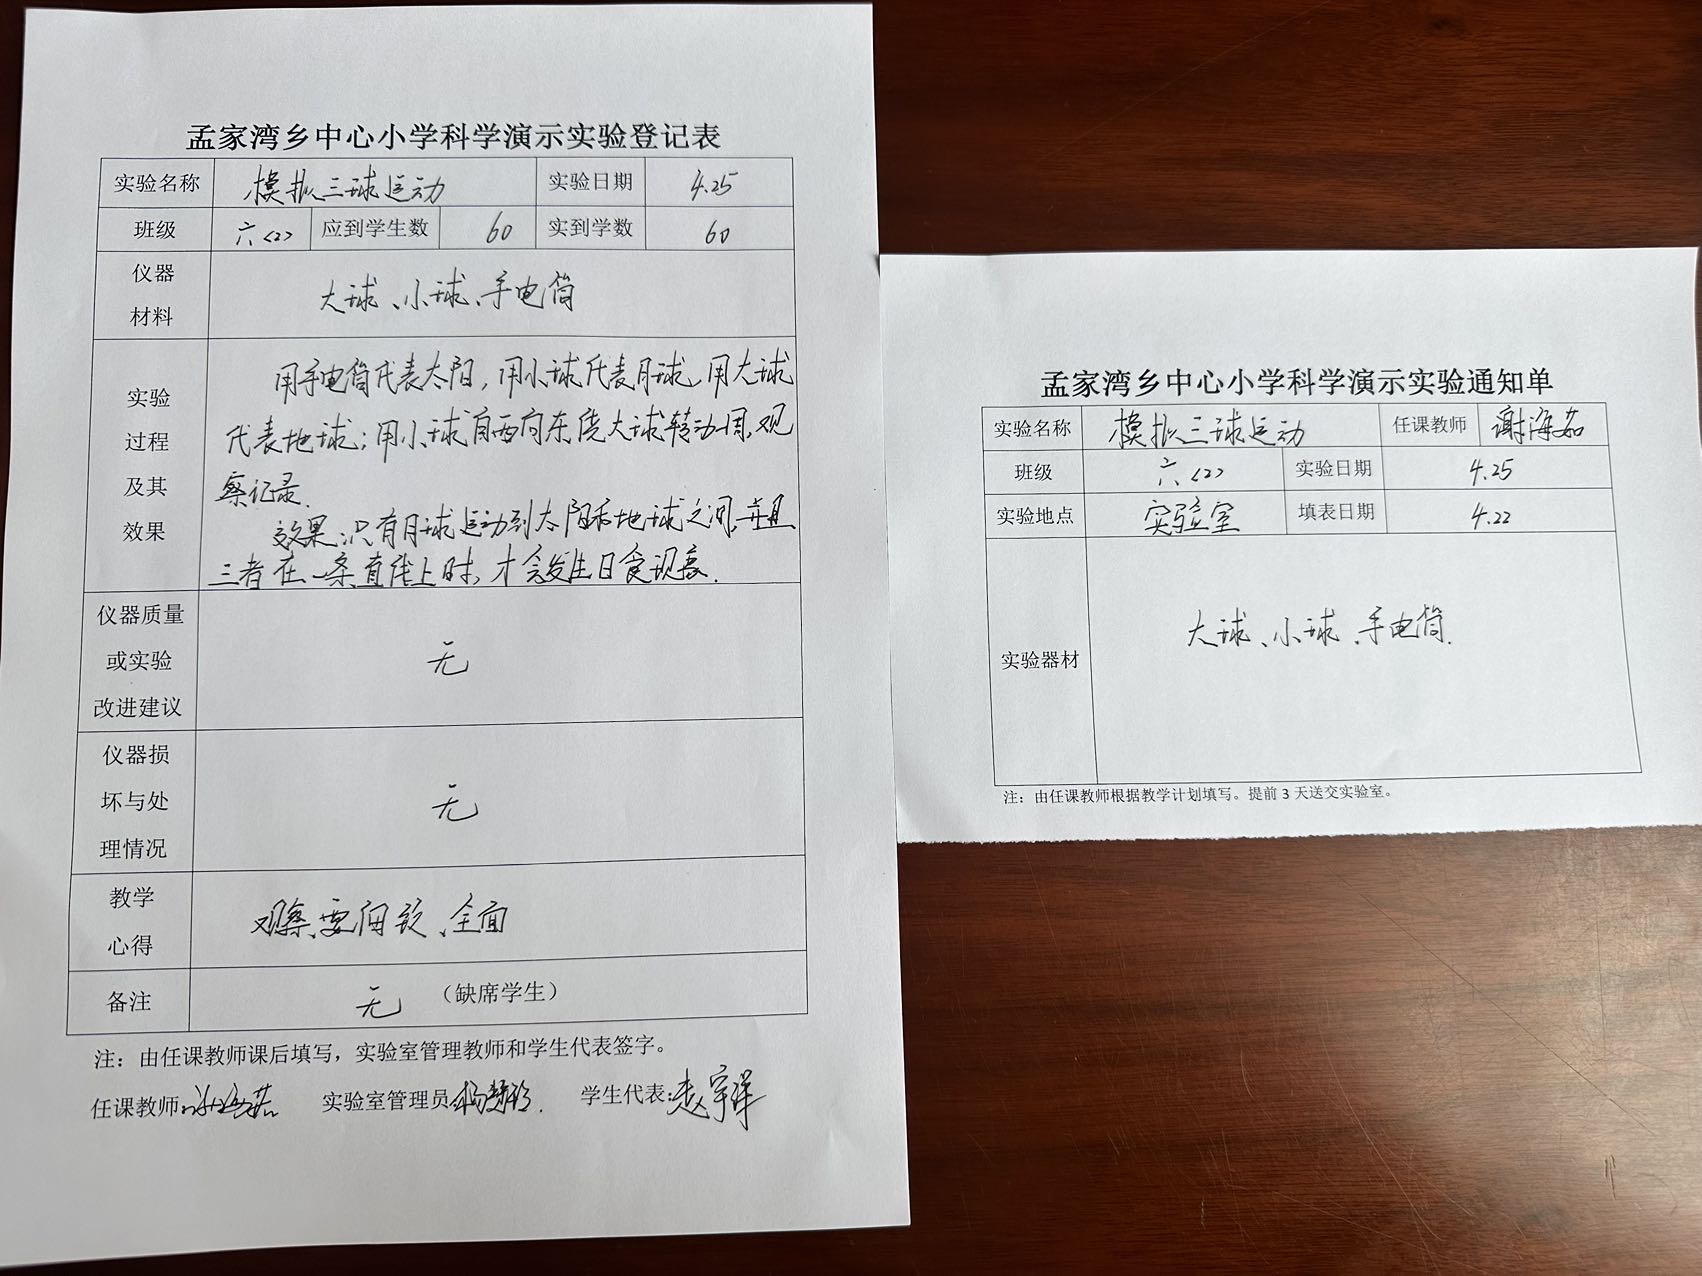 孟家湾乡中心小学科学演示实验登记表
实验名称 模拟三球运动 实验日期 4.25
班级 六<2> 应到学生数 60 实到学数 60
仪器
材料
大球、小球、手电筒
实验
过程
及其
效果
用手电筒代表太阳,用小球代表月球,用大球
代表地球;用小球自西向东绕大球转动一周,观
察记录.
效果:只有月球运动到太阳和地球之间,并且
三者在一条直线上时,才会发生日食现象.
仪器质量
或实验
改进建议
无
仪器损
坏与处
理情况
无
教学
心得
观察要细致、全面
备注 无 (缺席学生)
注:由任课教师课后填写,实验室管理教师和学生代表签字。
任课教师: 谢海茹 实验室管理员: 学生代表: 赵宇洋
孟家湾乡中心小学科学演示实验通知单
实验名称 模拟三球运动 任课教师 谢海茹
班级 六<2> 实验日期 4.25
实验地点 实验室 填表日期 4.22
实验器材 大球、小球、手电筒.
注:由任课教师根据教学计划填写。提前 3 天送交实验室。